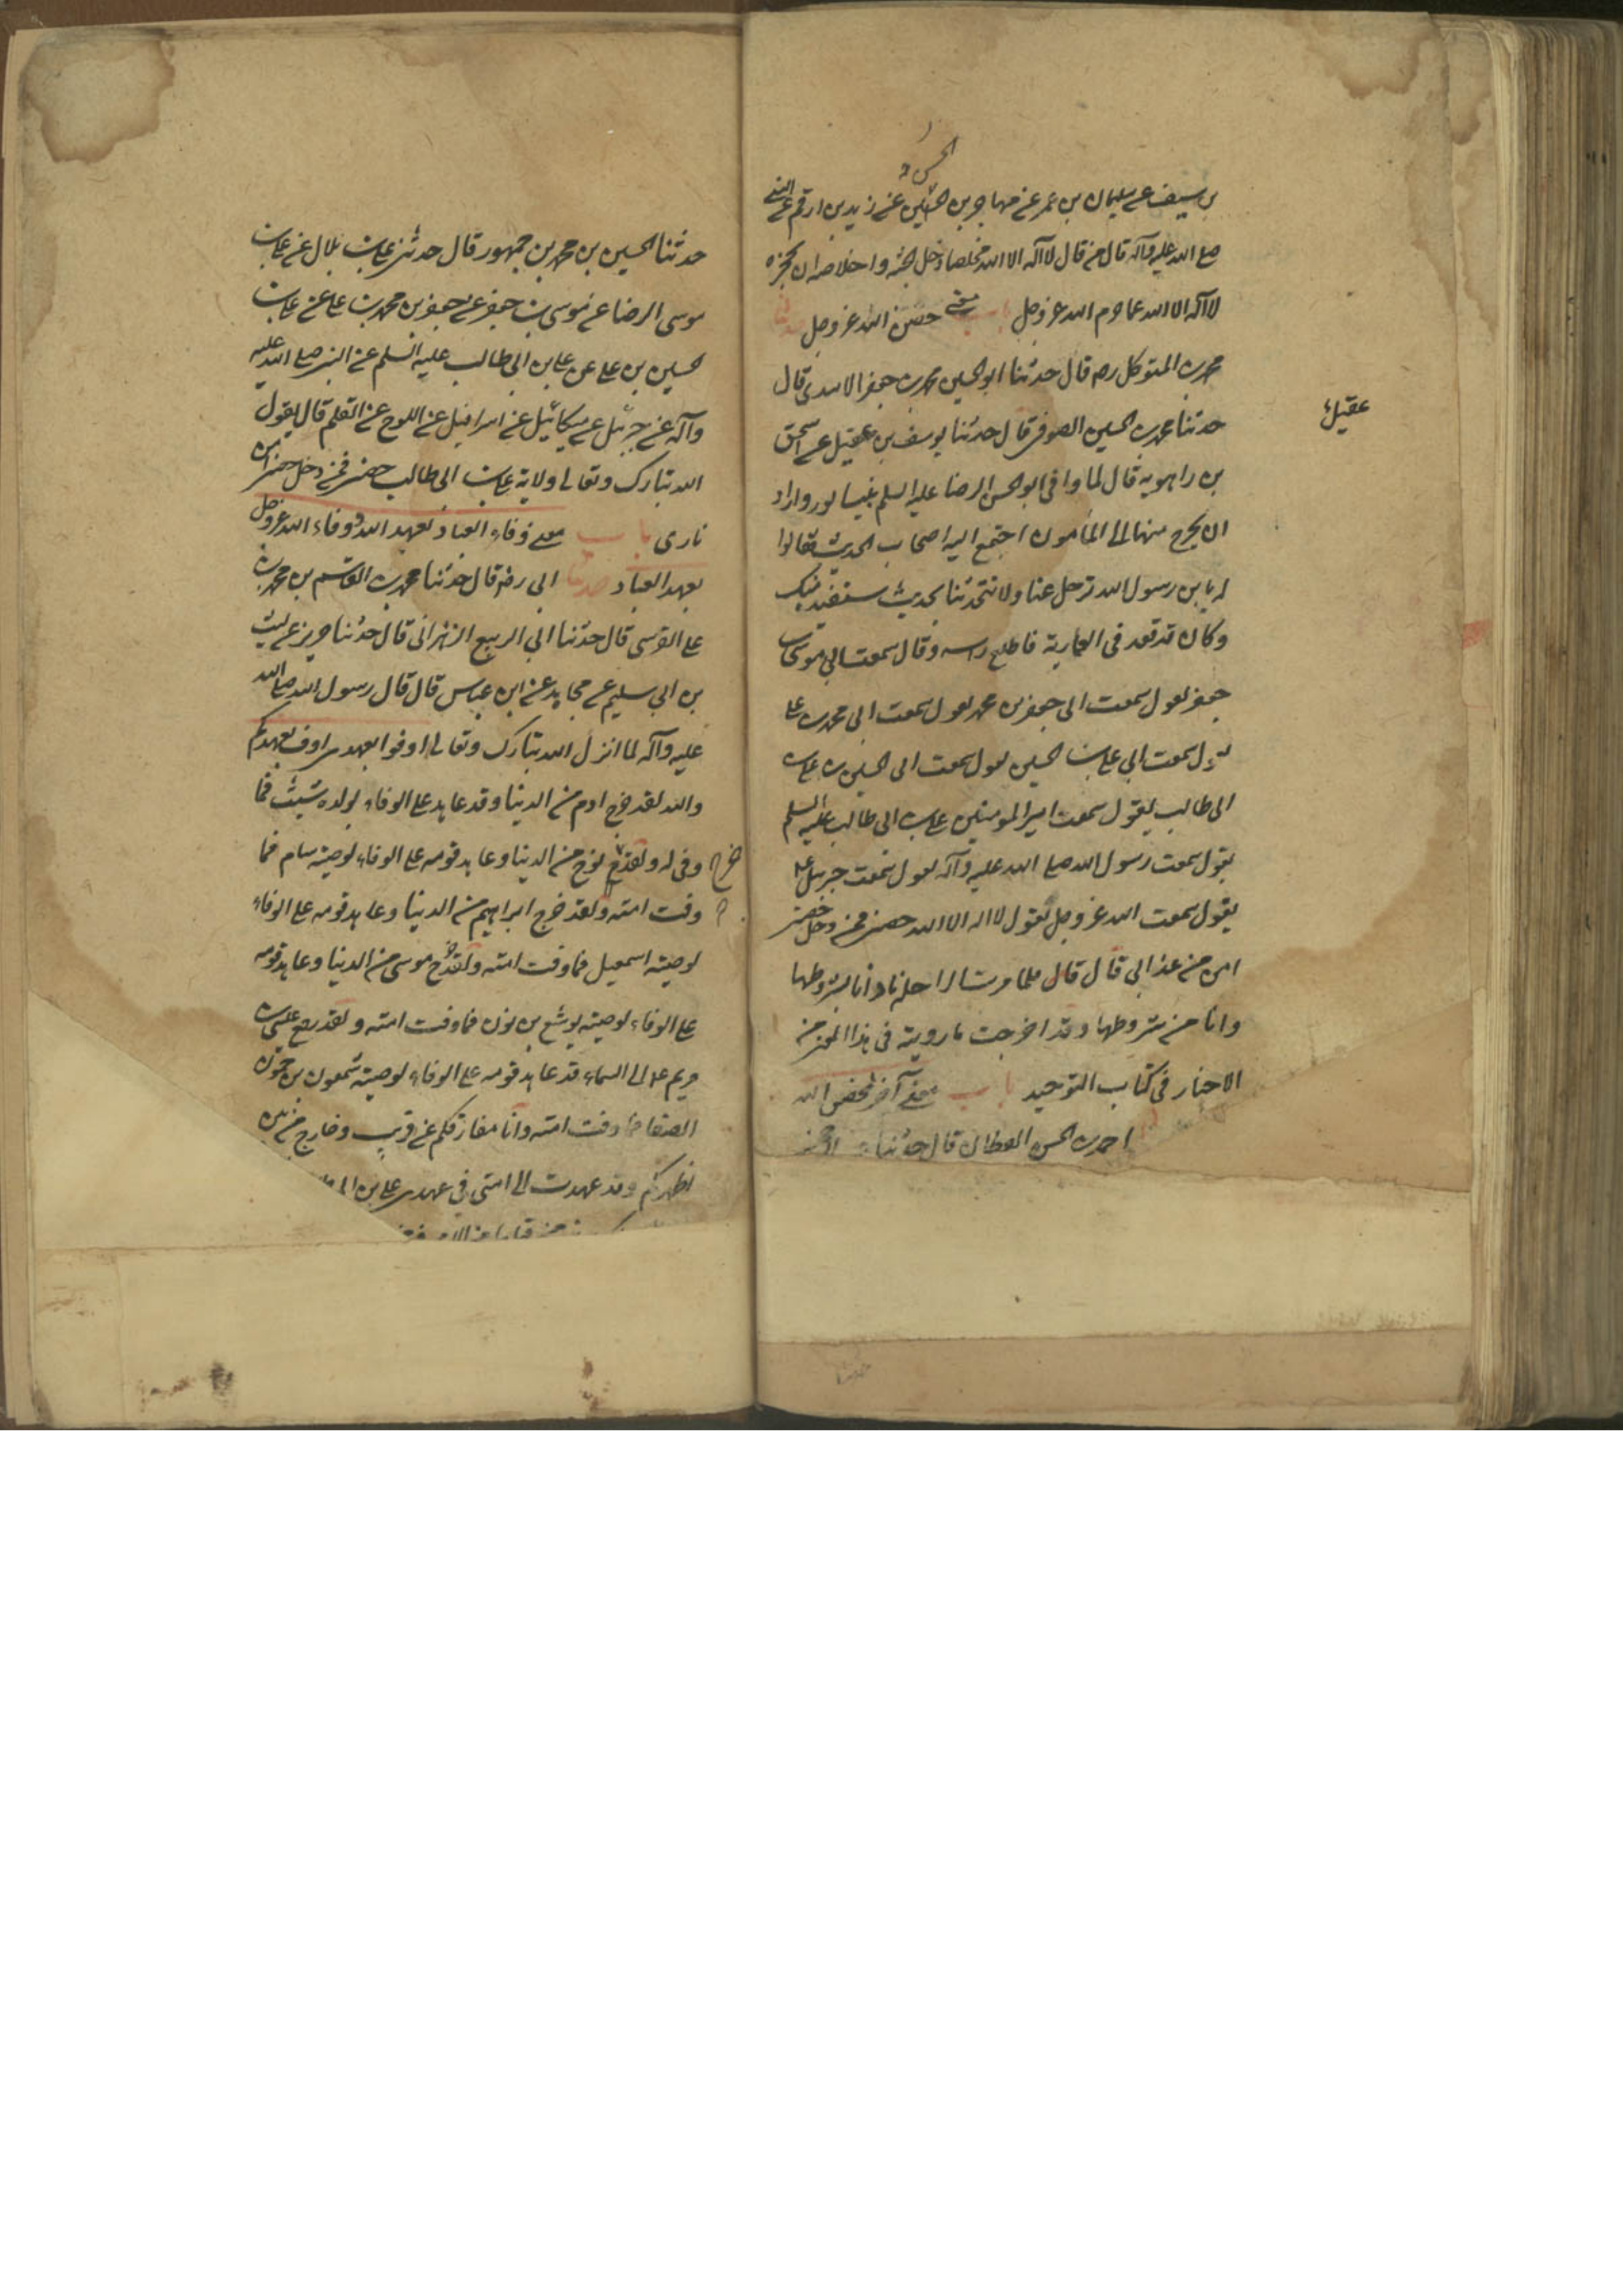 الحسين
بن سيف عن سليمان بن عمر عن مهاجر بن الحسين عن زيد بن ارقم عن النبي
صلى الله عليه وآله قال من قال لا اله الا الله مخلصا دخل الجنة واخلاصه ان تحجزه
لا اله الا الله عما حرم الله عز وجل باب معنى حصن الله عز وجل حدثنا
محمد بن المتوكل ره قال حدثنا ابو الحسين محمد بن جعفر الاسدي قال
حدثنا محمد بن الحسين الصوفي قال حدثنا يوسف بن عقيل عن اسحق
عقيل
بن راهويه قال لما وافى ابو الحسن الرضا عليه السلم بنيسابور واراد
ان يخرج منها الى المأمون اجتمع اليه اصحاب الحديث فقالوا
له يا بن رسول الله ترحل عنا ولا تحدثنا بحديث نستفيد منك
وكان قد قعد في العمارية فاطلع راسه وقال سمعت ابي موسى بن
جعفر يقول سمعت ابي جعفر بن محمد يقول سمعت ابي محمد بن علي
يقول سمعت ابي علي بن الحسين يقول سمعت ابي الحسين بن علي بن
ابي طالب يقول سمعت امير المومنين علي بن ابي طالب عليه السلم
يقول سمعت رسول الله صلى الله عليه وآله يقول سمعت جبرئيل ع
يقول سمعت الله عز وجل يقول لا اله الا الله حصني فمن دخل حصني
امن من عذابي قال قال فلما مرت الراحلة نادانا بشروطها
وانا من شروطها وقد اخرجت ما رويته في هذا المعنى من
الاخبار في كتاب التوحيد باب معنى آخر لحصن الله
احمد بن الحسن القطان قال حدثنا
حدثنا الحسين بن محمد بن جمهور قال حدثني علي بن بلال عن علي بن
موسى الرضا عن موسى بن جعفر عن جعفر بن محمد بن علي عن علي بن
حسين بن علي عن علي بن ابي طالب عليه السلم عن النبي صلى الله عليه
وآله عن جبرئيل عن ميكائيل عن اسرافيل عن اللوح عن القلم قال يقول
الله تبارك وتعالى ولاية علي بن ابي طالب حصني فمن دخل حصني امن
ناري باب معنى وفاء العباد بعهد الله ووفاء الله عز وجل
بعهد العباد حدثنا ابي رضه قال حدثنا محمد بن القاسم بن محمد بن
علي القرسى قال حدثنا ابي الربيع الزهراني قال حدثنا حريز عن ليث
بن ابي سليم عن مجاهد عن ابن عباس قال قال رسول الله صلى الله
عليه وآله لما انزل الله تبارك وتعالى اوفوا بعهدي اوف بعهدكم
والله لقد خرج ادم من الدنيا وقد عاهد على الوفاء لولده شيث فما
وفى له ولقد خرج نوح من الدنيا وعاهد قومه على الوفاء لوصيه سام فما
خرج
وفت امته ولقد خرج ابراهيم من الدنيا وعاهد قومه على الوفاء
لوصيه اسمعيل فما وفت امته ولقد خرج موسى من الدنيا وعاهد قومه
على الوفاء لوصيه يوشع بن نون فما وفت امته ولقد رفع عيسى بن
مريم ع الى السماء قد عاهد قومه على الوفاء لوصيه شمعون بن حمون
الصفا فما وفت امته وانا مفارقكم عن قريب وخارج من بين
اظهركم وقد عهدت الى امتي في عهدي علي بن ابي